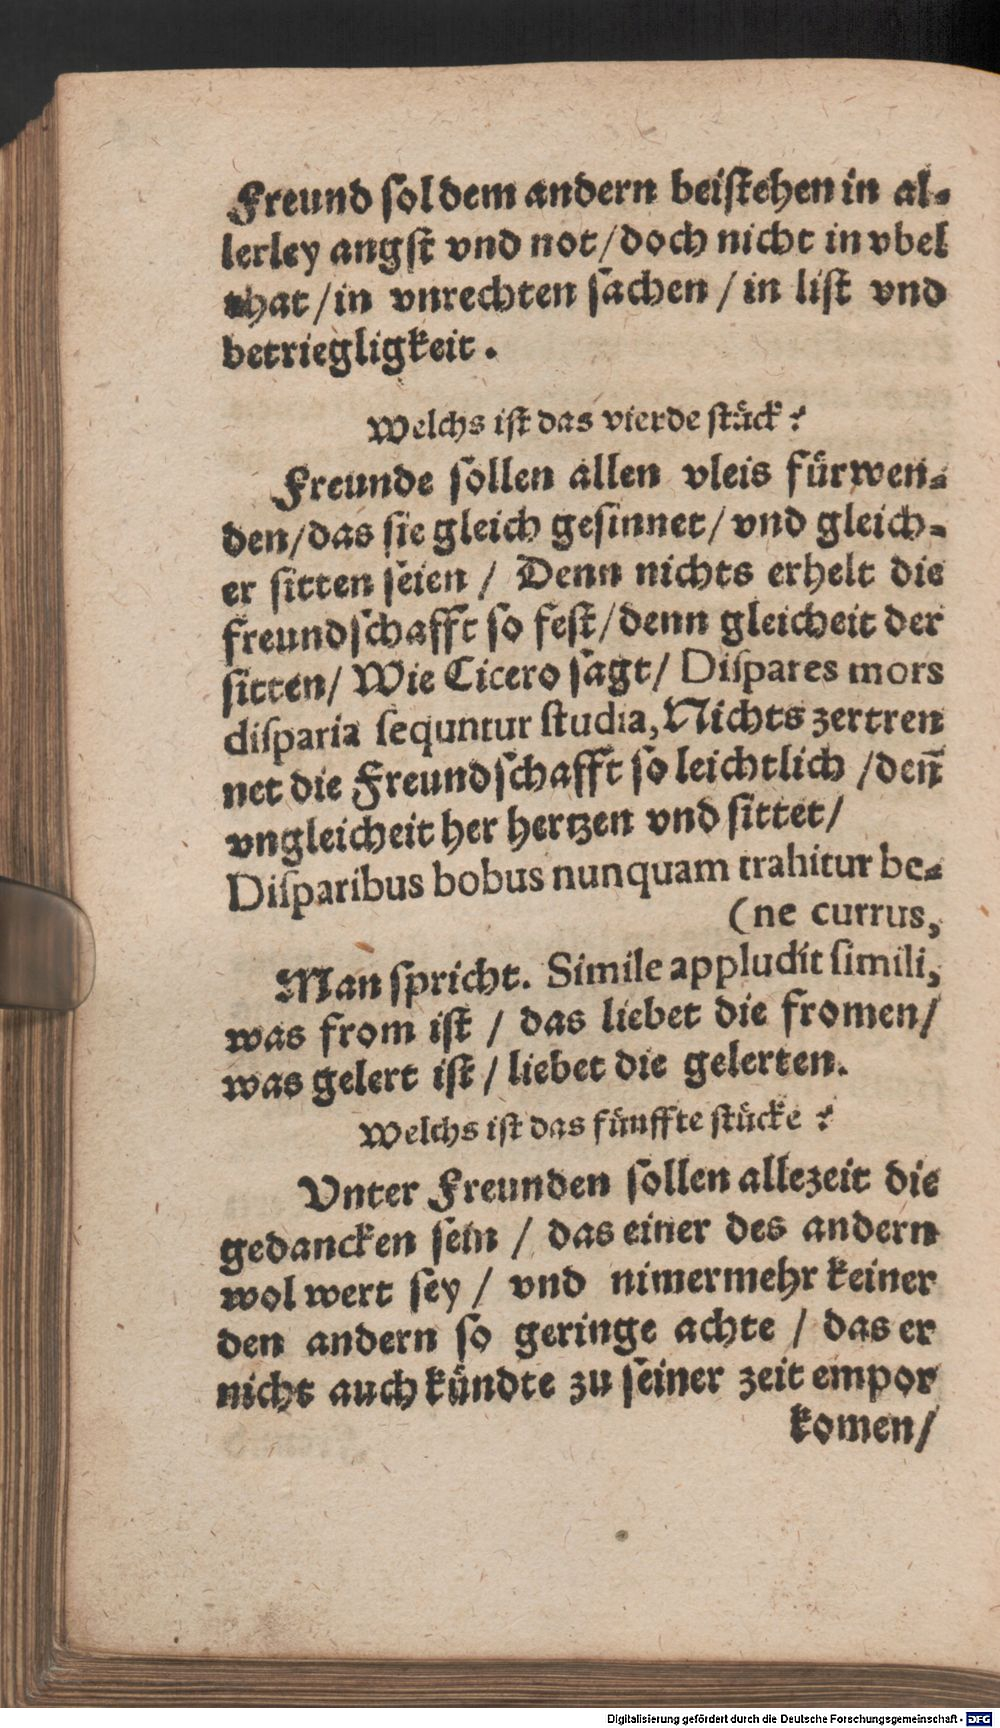 Freund sol dem andern beistehen in al-
lerley angst vnd not/doch nicht in vbel
that/in vnrechten sachen/in list vnd
betriegligkeit.
Welchs ist das vierde stück?
Freunde sollen allen vleis fürwen-
den/das sie gleich gesinnet/vnd gleich-
er sitten seien/ Denn nichts erhelt die
freundschafft so fest/denn gleicheit der
sitten/ Wie Cicero sagt/ Dispares mors
disparia sequntur studia, Nichts zertren
net die Freundschafft so leichtlich /deñ
vngleicheit her hertzen vnd sittet/
Disparibus bobus nunquam trahitur be-
(ne currus,
Man spricht. Simile appludit simili,
was from ist / das liebet die fromen/
was gelert ist/liebet die gelerten.
Welchs ist das fünffte stücke?
Vnter Freunden sollen allezeit die
gedancken sein / das einer des andern
wol wert sey / vnd nimermehr keiner
den andern so geringe achte / das er
nicht auch kündte zu seiner zeit empor
komen/
Digitalisierung gefördert durch die Deutsche Forschungsgemeinschaft - DFG